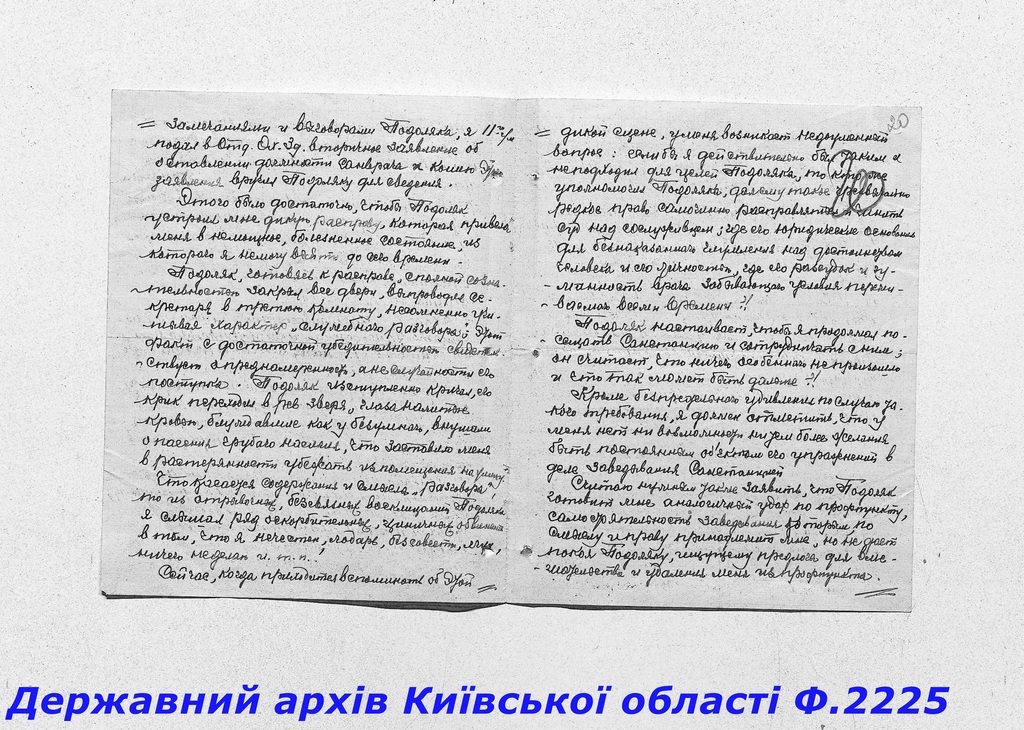 = Замечаниями и выговорами Подоляка, я 11го с/м
подал в Отд. Ох. Зд. вторичное заявление об
оставлении должности Санврача и копию этого
заявления вручил Подоляку для сведения.
Этого было достаточно, чтобы Подоляк
устроил мне дикую расправу, которая привела
меня в немощное, болезненное состояние, из
которого я не могу выйти до сего времени.
Подоляк, готовясь к расправе, с полной созна-
тельностью закрыл все двери, выпроводив се-
кретаря в третью комнату, несомненно учи-
тывая характер „служебного разговора"; этот
факт с достаточной убедительностью свидетель-
ствует о преднамеренности, а не случайности его
поступка. Подоляк исступленно кричал, его
крик переходил в рев зверя, глаза налитые
кровью, блуждавшие как у безумного, внушали
опасения грубого насилия, что заставило меня
в растерянности убежать из помещения на улицу.
Что касается содержания и смысла „разговора",
то из отрывочных, бессвязных восклицаний Подоляка
я слышал ряд оскорбительных, циничных обвинений
в том, что я нечестен, лодырь, без совести, лгун,
ничего не делаю и т. п.!
Сейчас, когда приходится вспоминать об этой =
20
= дикой сцене, у меня возникает недоуменный
вопрос: если бы я действительно был таким и
неподходил для целей Подоляка, то кто же
уполномочил Подоляка, дал ему такое чрезвычайно
редкое право самолично расправляться и чинить
суд над сослуживцем; где его юридические основания
для безнаказанного глумления над достоинством
человека и его личностью, где его рассудок и гу-
манность врача забывающего условия пережи-
ваемых всеми времени?!
Подоляк настаивает, чтобы я продолжал по-
сещать Санстанцию и сотрудничать с ним;
он считает, что ничего особенного не произошло
и что так может быть дальше?!
Кроме беспредельного удивления по случаю та-
кого требования, я должен отметить, что у
меня нет ни возможности ни тем более желания
быть постоянным объектом его упражнений в
деле заведывания Санстанцией
Считаю нужным также заявить, что Подоляк
готовит мне аналогичный удар по профпункту,
самостоятельность заведования которым по
смыслу и праву принадлежит мне, но не дает
покоя Подоляку, ищущему предлога для вме-
шательства и удаления меня из профпункта.
=
Державний архів Київської області Ф.2225